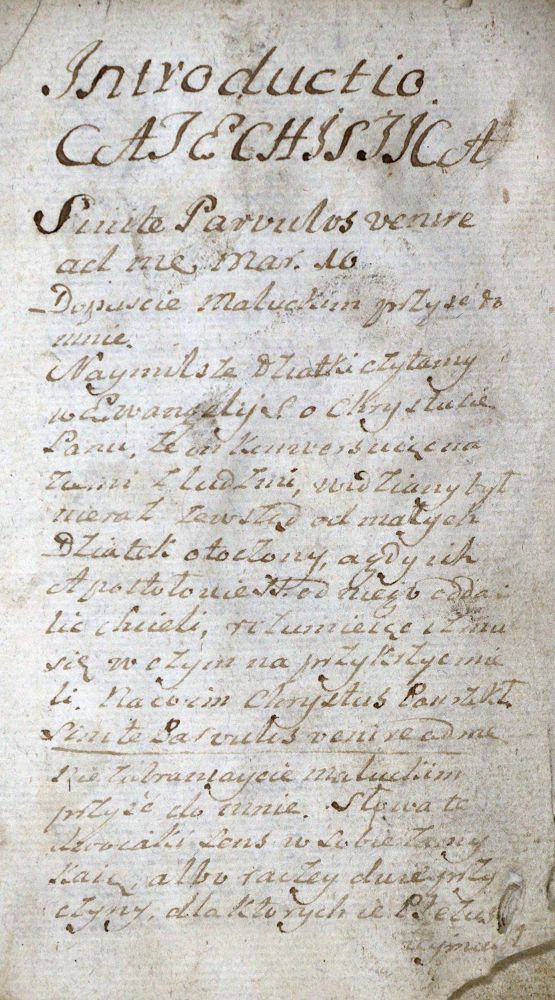 Introductio
CATECHISTICA
Sinite Parvulos venire
ad me, Mar. 10
Dopuscie Maluckim przyść do
mnie.
Naymilsze Dziatki czytamy
w Ewangelij S. o Chrystusie
Panu, że on konwersuięc na
ziemi z ludzmi, widziany był
nieraz zewsząd od małych
Dziatek otoczony, a gdy ich
Apostołowie SS od niego odda-
lić chcieli, rozumieięc iż mu
się w czym naprzykrzyć mie
li. Na co im Chrystus Pan rzekł,
Sinite Parvulos venire ad me
Nie zabraniaycie maluckim
przyść do mnie. Słowa te
dwoiaki sens w sobie zamy
kaię, albo raczey dwie przy
czyny, dla ktorych ie P Jezus